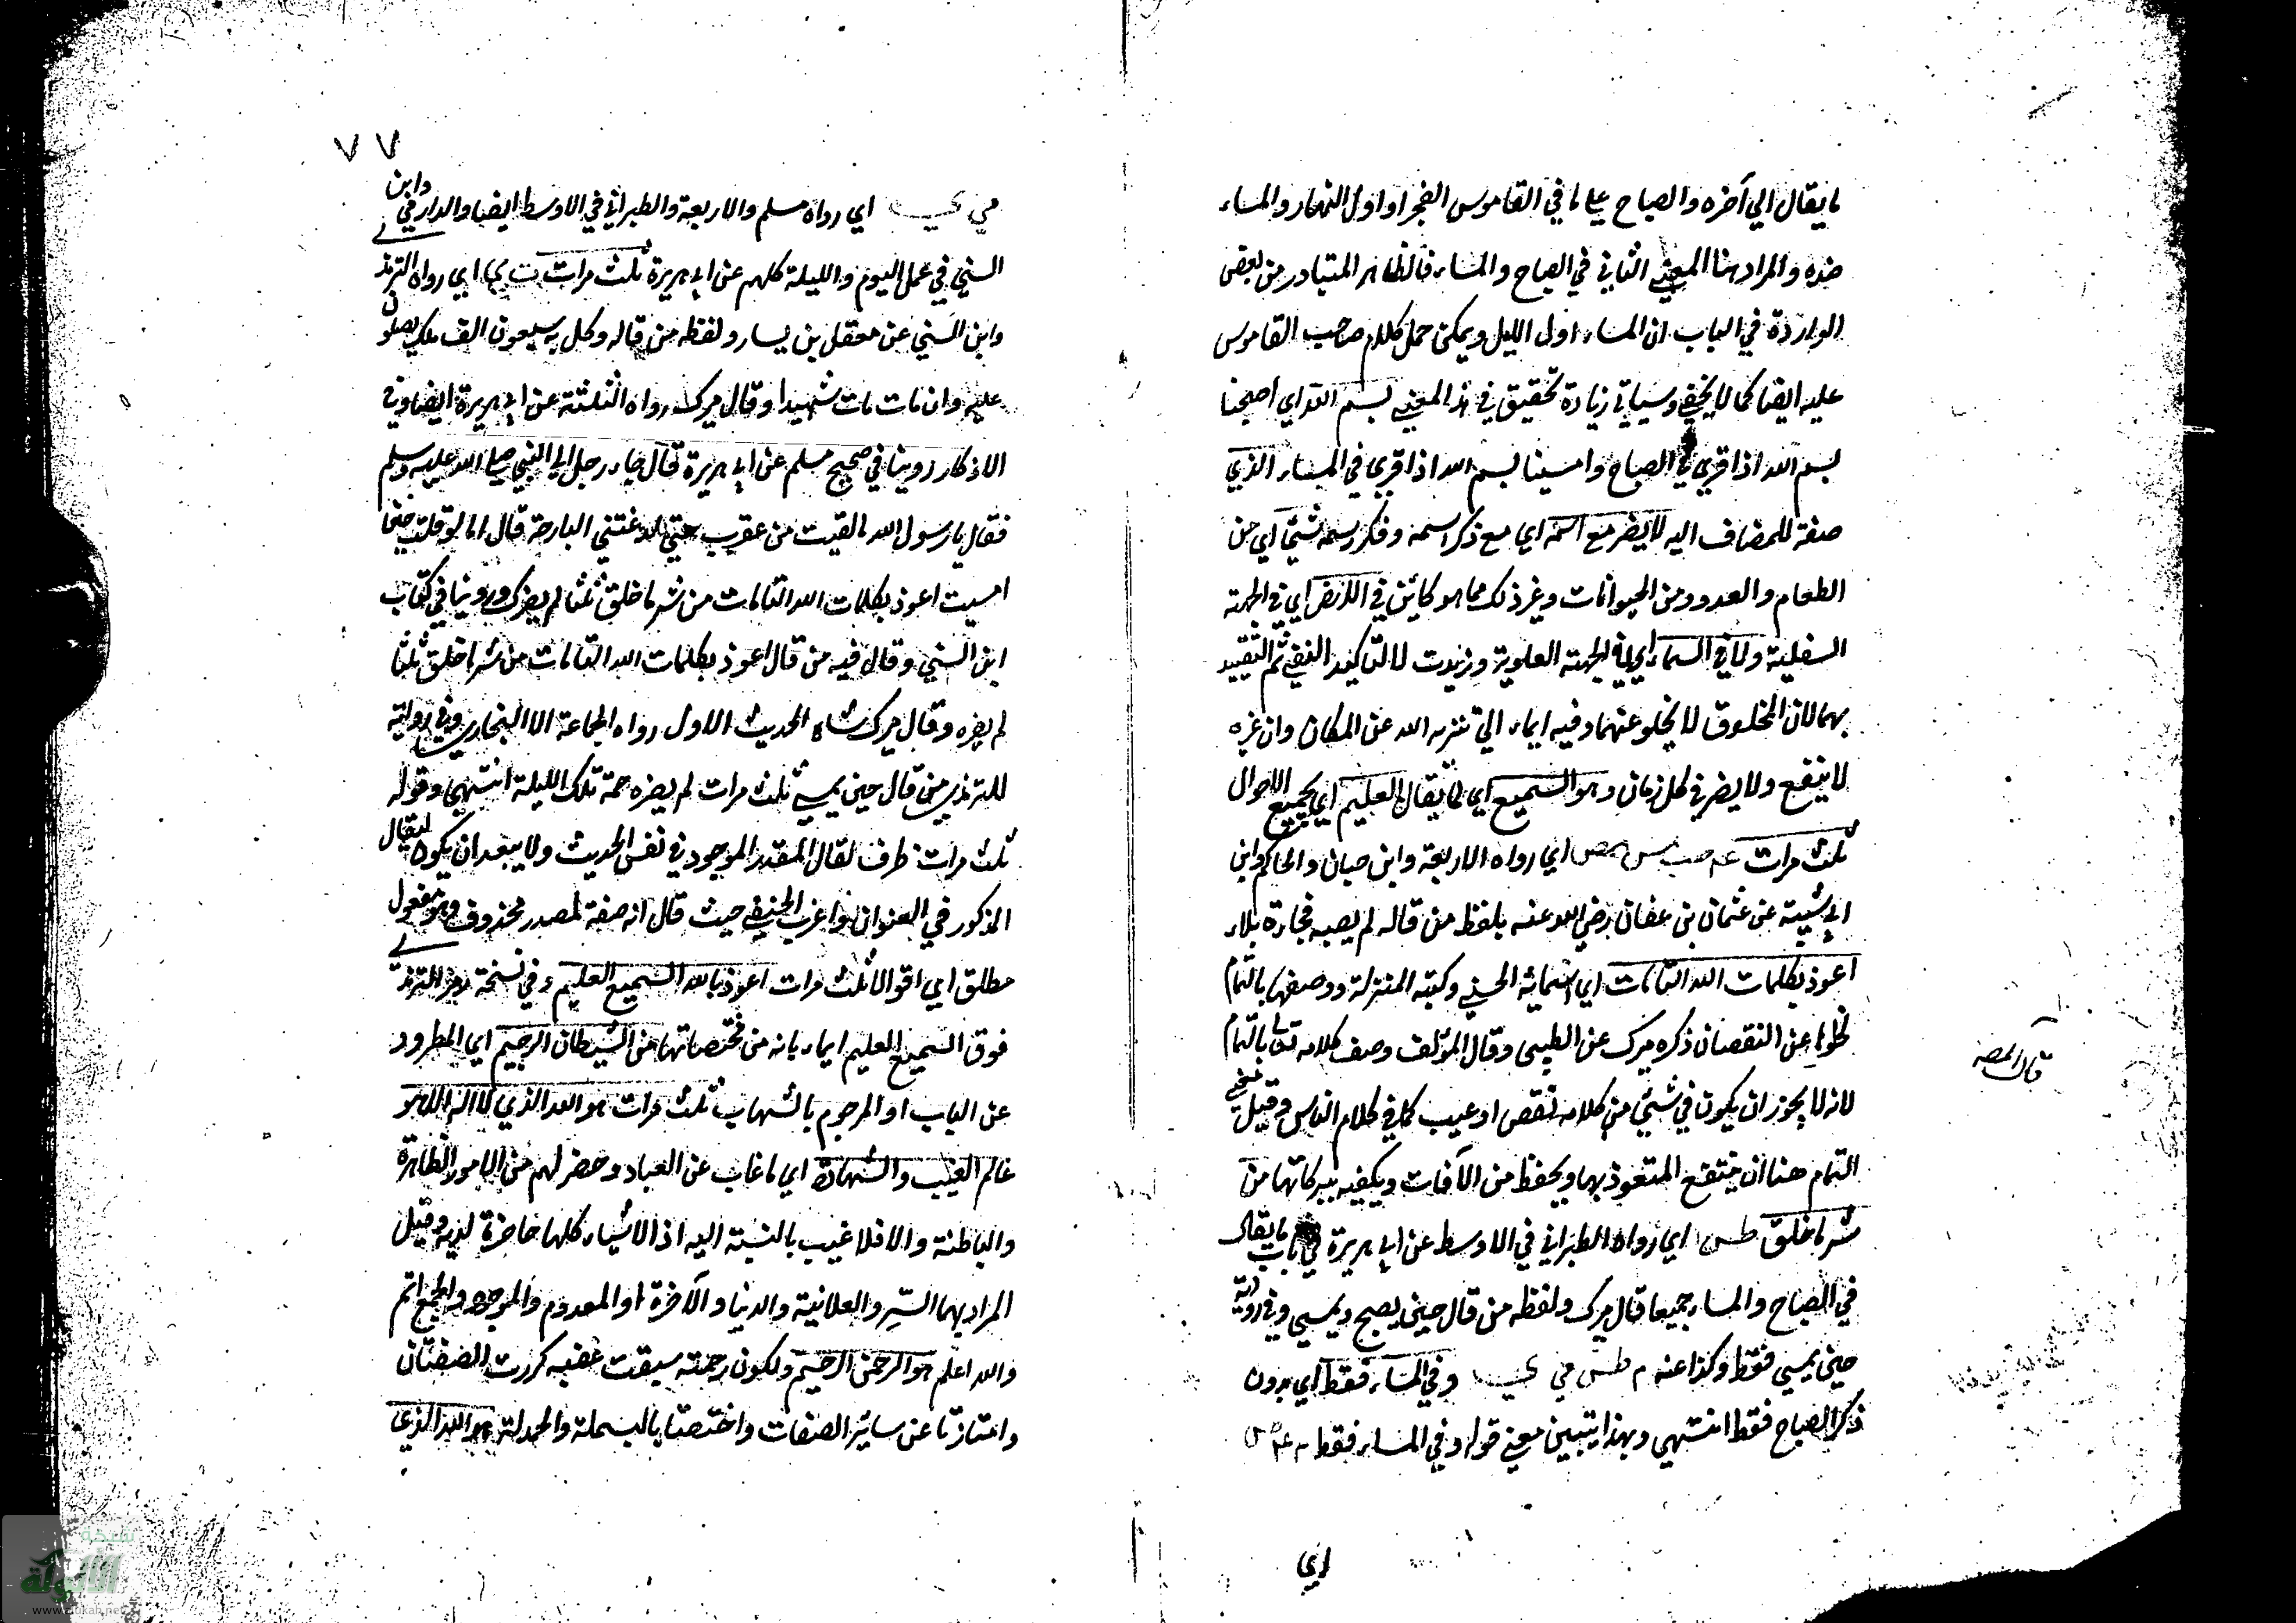 ما يقال الي آخره والصباح علي ما في القاموس الفجر او اول النهار والمساء
ضده والمراد هنا المعني الثاني في الصباح والمساء فالظاهر المتبادر من بعض
الواردة في الباب ان المساء اول الليل ويمكن حمل كلام صاحب القاموس
عليه ايضا كما لا يخفي وسياتي زيادة تحقيق في هذا المعني بسم الله اي اصبحنا
بسم الله اذا قري في الصباح وامسينا بسم الله اذا قري في المساء الذي
صفة للمضاف اليه لا يضر مع اسمه اي مع ذكر اسمه وفكر رسمه شيئ اي من
الطعام والعدو ومن الحيوانات وغير ذلك مما هو كائن في الارض اي في الجهة
السفلية ولا في السماء اي في الجهة العلوية وزيدت لا لتاكيد النفي ثم التقييد
بهما لان المخلوق لا يخلو عنهما وفيه ايماء الي تنزيه الله عن المكان وان غيره
لا ينفع ولا يضر في كل زمان وهو السميع اي لما يقال العليم اي بجميع الاحوال
ثلث مرات عه حب مس مص اي رواه الاربعة وابن حبان والحاكم وابن
ابي شيبة عن عثمان بن عفان رضي الله عنه بلفظ من قاله لم يصبه فجاءة بلاء
اعوذ بكلمات الله التامات اي اسمائه الحسني وكتبه المنزلة ووصفها بالتمام
لخلوها عن النقصان ذكره ميرك عن الطيبي وقال المؤلف وصف كلامه تعالي بالتمام
قال المصه
لانه لا يجوز ان يكون في شيئ من كلامه نقص او عيب كما في كلام الناس وقيل معني
التمام هنا ان ينتفع المتعوذ بها ويحفظ من الآفات ويكفيه ببركاتها من
شر ما خلق طس اي رواه الطبراني في الاوسط عن ابي هريرة في باب ما يقال
في الصباح والمساء جميعا قال ميرك ولفظه من قال حين يصبح ويمسي وفي رواية
حين يمسي فقط وكذا عنه م طس مي ي وفي المساء فقط اي بدون
ذكر الصباح فقط انتهي وبهذا يتبين معني قوله وفي المساء فقط م عه
اي
٧٧
مي ي اي رواه مسلم والاربعة والطبراني في الاوسط ايضا والدارمي وابن
السني في عمل اليوم والليلة كلهم عن ابي هريرة ثلث مرات ت ي اي رواه الترمذ
وابن السني عن معقل بن يسار ولفظه من قاله وكل به سبعون الف ملك يصلون
عليه وان مات مات شهيدا وقال ميرك رواه الثلثة عن ابي هريرة ايضا وفي
الاذكار روينا في صحيح مسلم عن ابي هريرة قال جاء رجل الي النبي صلي الله عليه وسلم
فقال يا رسول الله ما لقيت من عقرب حتي لدغتني البارحة قال اما لو قلت حين
امسيت اعوذ بكلمات الله التامات من شر ما خلق ثلثا لم يضرك وروينا في كتاب
ابن السني وقال فيه من قال اعوذ بكلمات الله التامات من شر ما خلق ثلثا
لم يضره وقال ميرك شاه الحديث الاول رواه الجماعة الا البخاري وفي رواية
للترمذي من قال حين يمسي ثلث مرات لم يضره حمة تلك الليلة انتهي وقوله
ثلث مرات ظرف لقال المقدر الموجود في نفس الحديث ولا يبعد ان يكون ليقال
المذكور في العنوان واغرب الحنفي حيث قال انه صفة لمصدر محذوف وهو مفعول
مطلق اي اقوالا ثلث مرات اعوذ بالله السميع العليم وفي نسخة رمز الترمذ
فوق السميع العليم ايماء بانه من مختصاتها من الشيطان الرجيم اي المطرود
عن الباب او المرجوم بالشهاب ثلث مرات هو الله الذي لا اله الا هو
عالم الغيب والشهادة اي ما غاب عن العباد وحضر لهم من الامور الظاهرة
والباطنة والا فلا غيب بالنسبة اليه اذ الاشياء كلها حاضرة لديه وقيل
المراد بهما السر والعلانية والدنيا والآخرة او المعدوم والموجود والجمع اتم
والله اعلم هو الرحمن الرحيم ولكون رحمته سبقت غضبه كررت الصفتان
وامتازتا عن سائر الصفات واختصتا بالبسملة والحمدلة هو الله الذي
شبكة
الألوكة
www.alukah.net